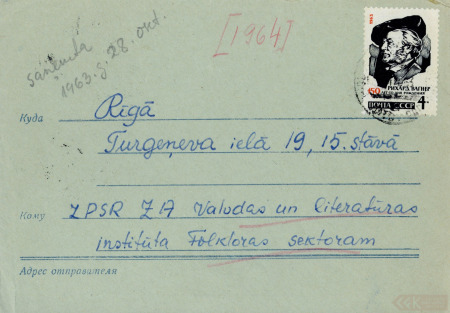 [1964]
saņemta
1963.g. 28. okt.
1963
150
РИХАРД ВАГНЕР
ПОЧТА СССР 4К
Куда Rīgā
Turgeņeva ielā 19, 15. stāvā
Кому ZPSR ZIA Valodas un literatūras
institūta Folkloras sektoram
Адрес отправителя